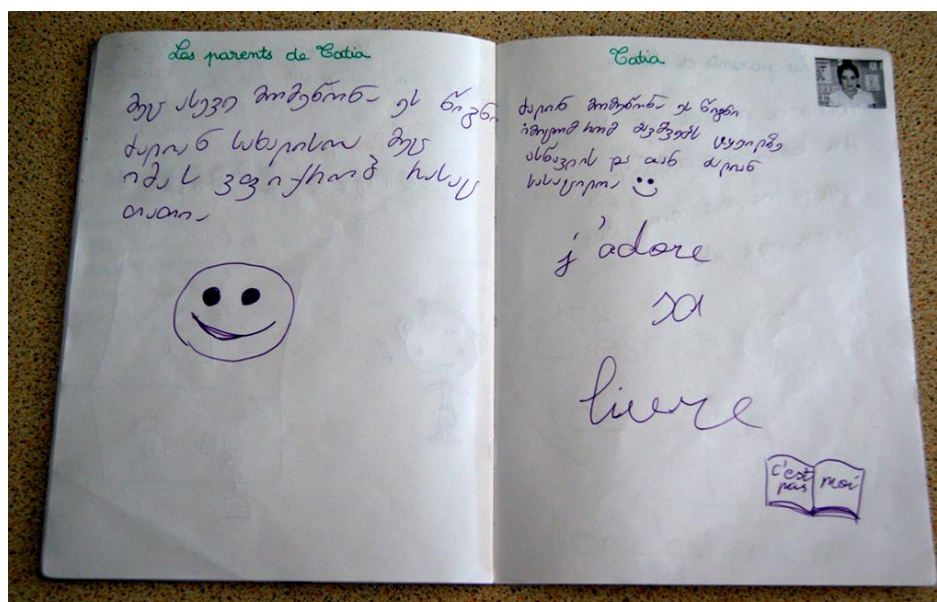 Les parents de Tatia
მეც ასევე მომეწონა ეს წიგნი
ძალიან სახალისოა მეც
იმას ვფიქრობ რასაც
თათია
Tatia
ძალიან მომეწონა ეს წიგნი
იმიტომ რომ ბავშვებს
ასწავლის და თან ძალიან
სასაცილოა
j'adore
sa
livre
c'est
pas
moi